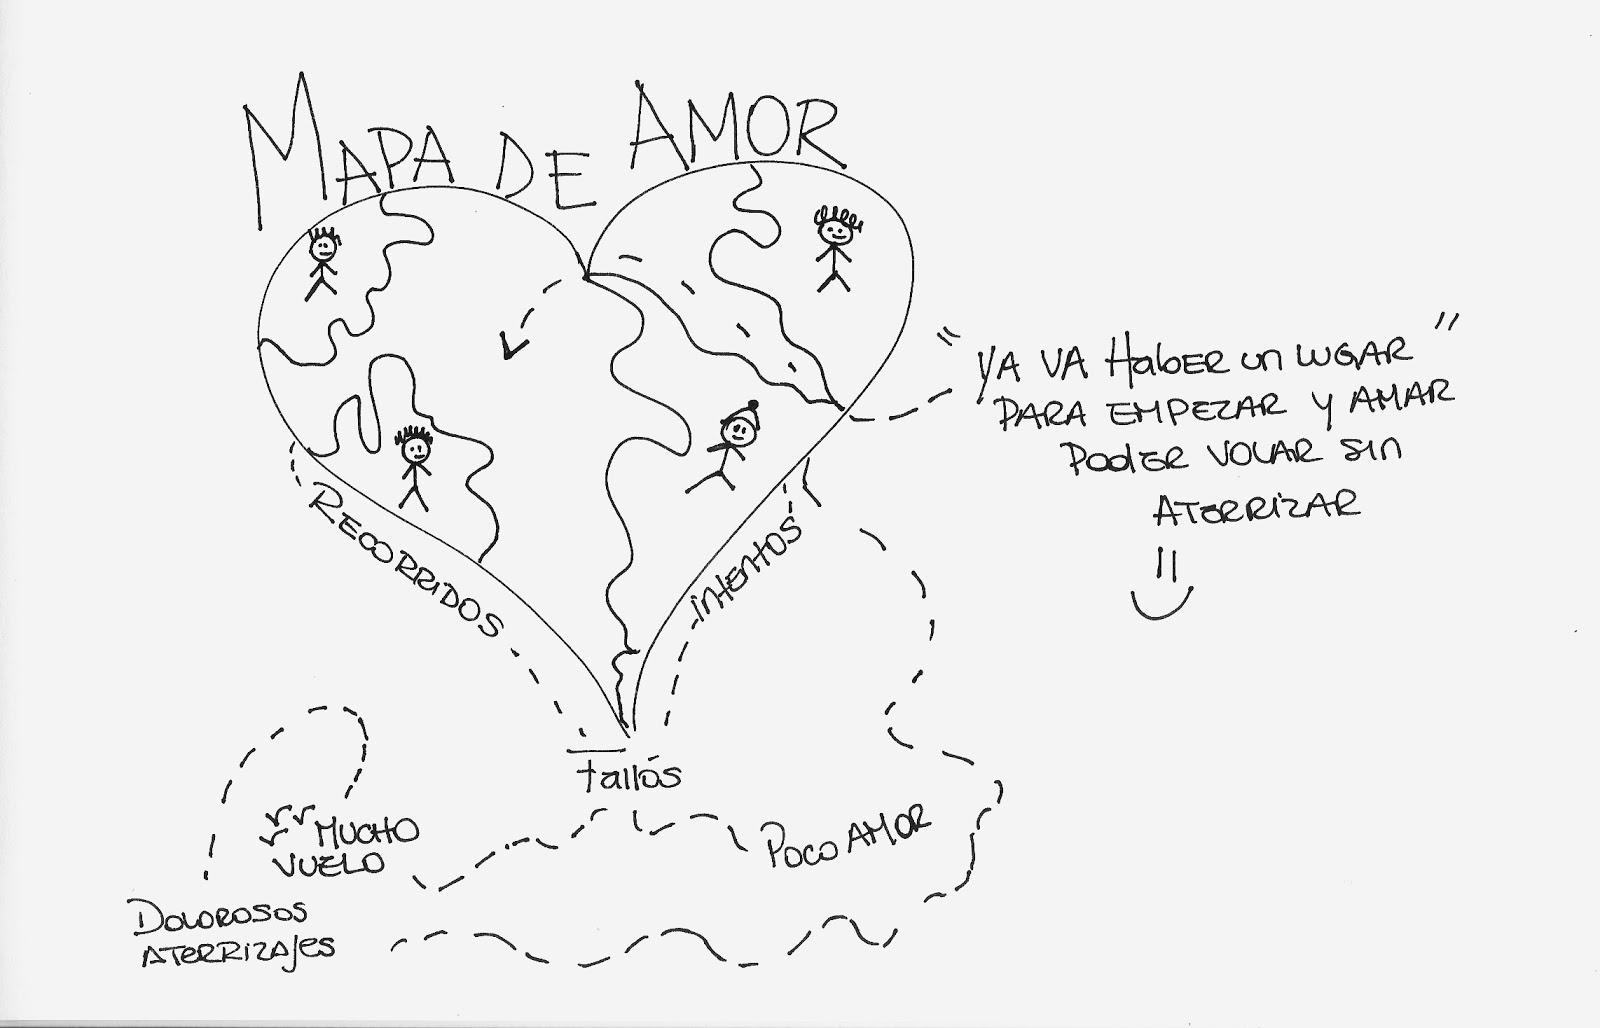 MAPA DE AMOR
"YA VA HabER un LUGAR"
PARA EMPEZAR Y AMAR
PodER VOLAR SIn
ATERRIZAR
RECORRIDOS
intentos
fallós
MUCHO
VUELO
POCO AMOR
DOLOROSOS
ATERRIZAJES